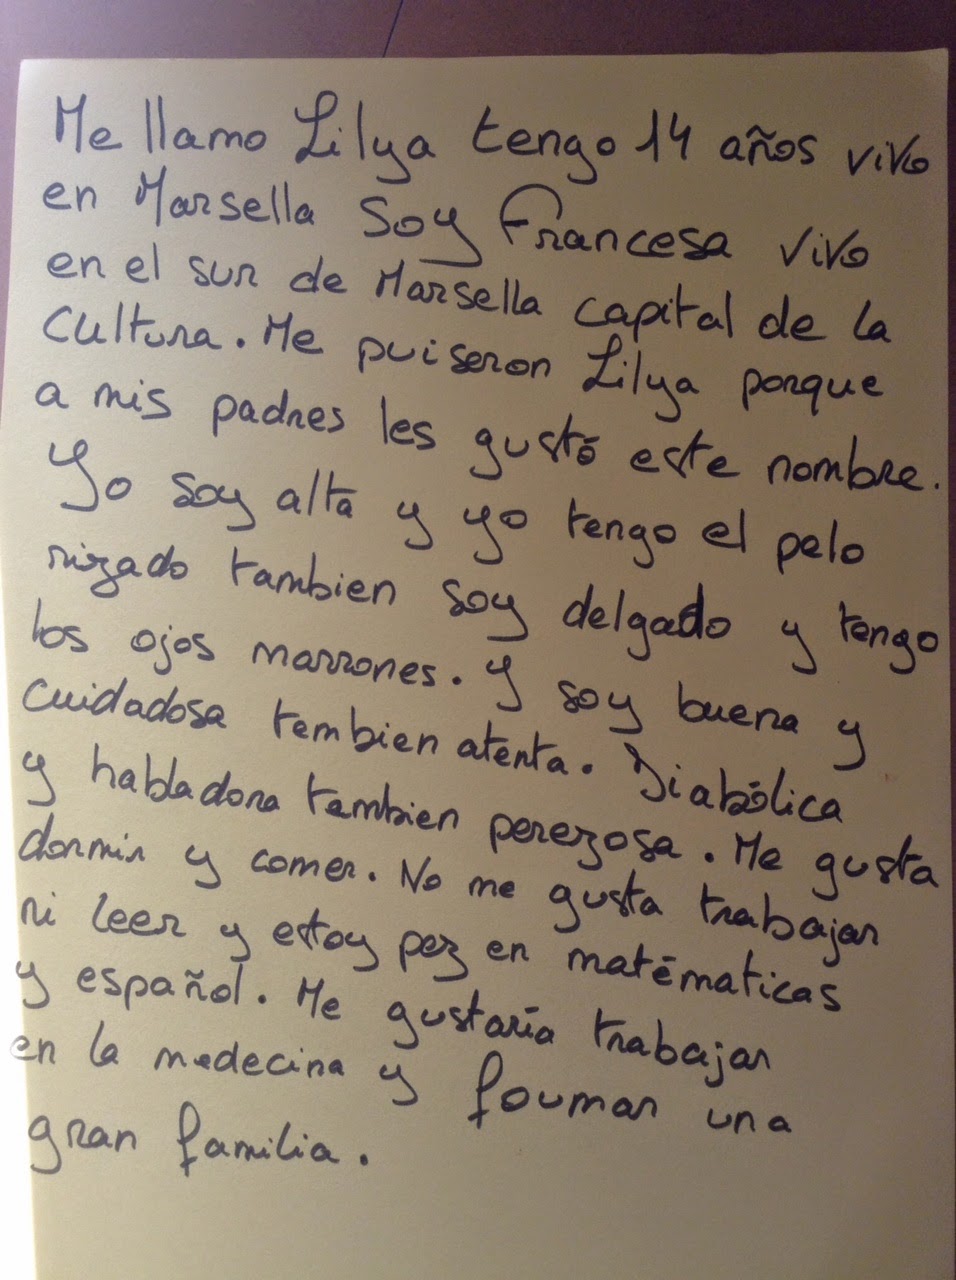 Me llamo Lilya tengo 14 años vivo
en Marsella Soy Francesa vivo
en el sur de Marsella capital de la
Cultura. Me puiseron Lilya porque
a mis padres les gustó este nombre.
Yo soy alta y yo tengo el pelo
rizado tambien soy delgado y tengo
los ojos marrones. Y soy buena y
cuidadosa tembien atenta. Diabólica
y habladora tambien perezosa. Me gusta
dormir y comer. No me gusta trabajar
ni leer y estoy pez en matématicas
y español. Me gustaría trabajar
en la medecina y foumar una
gran familia.